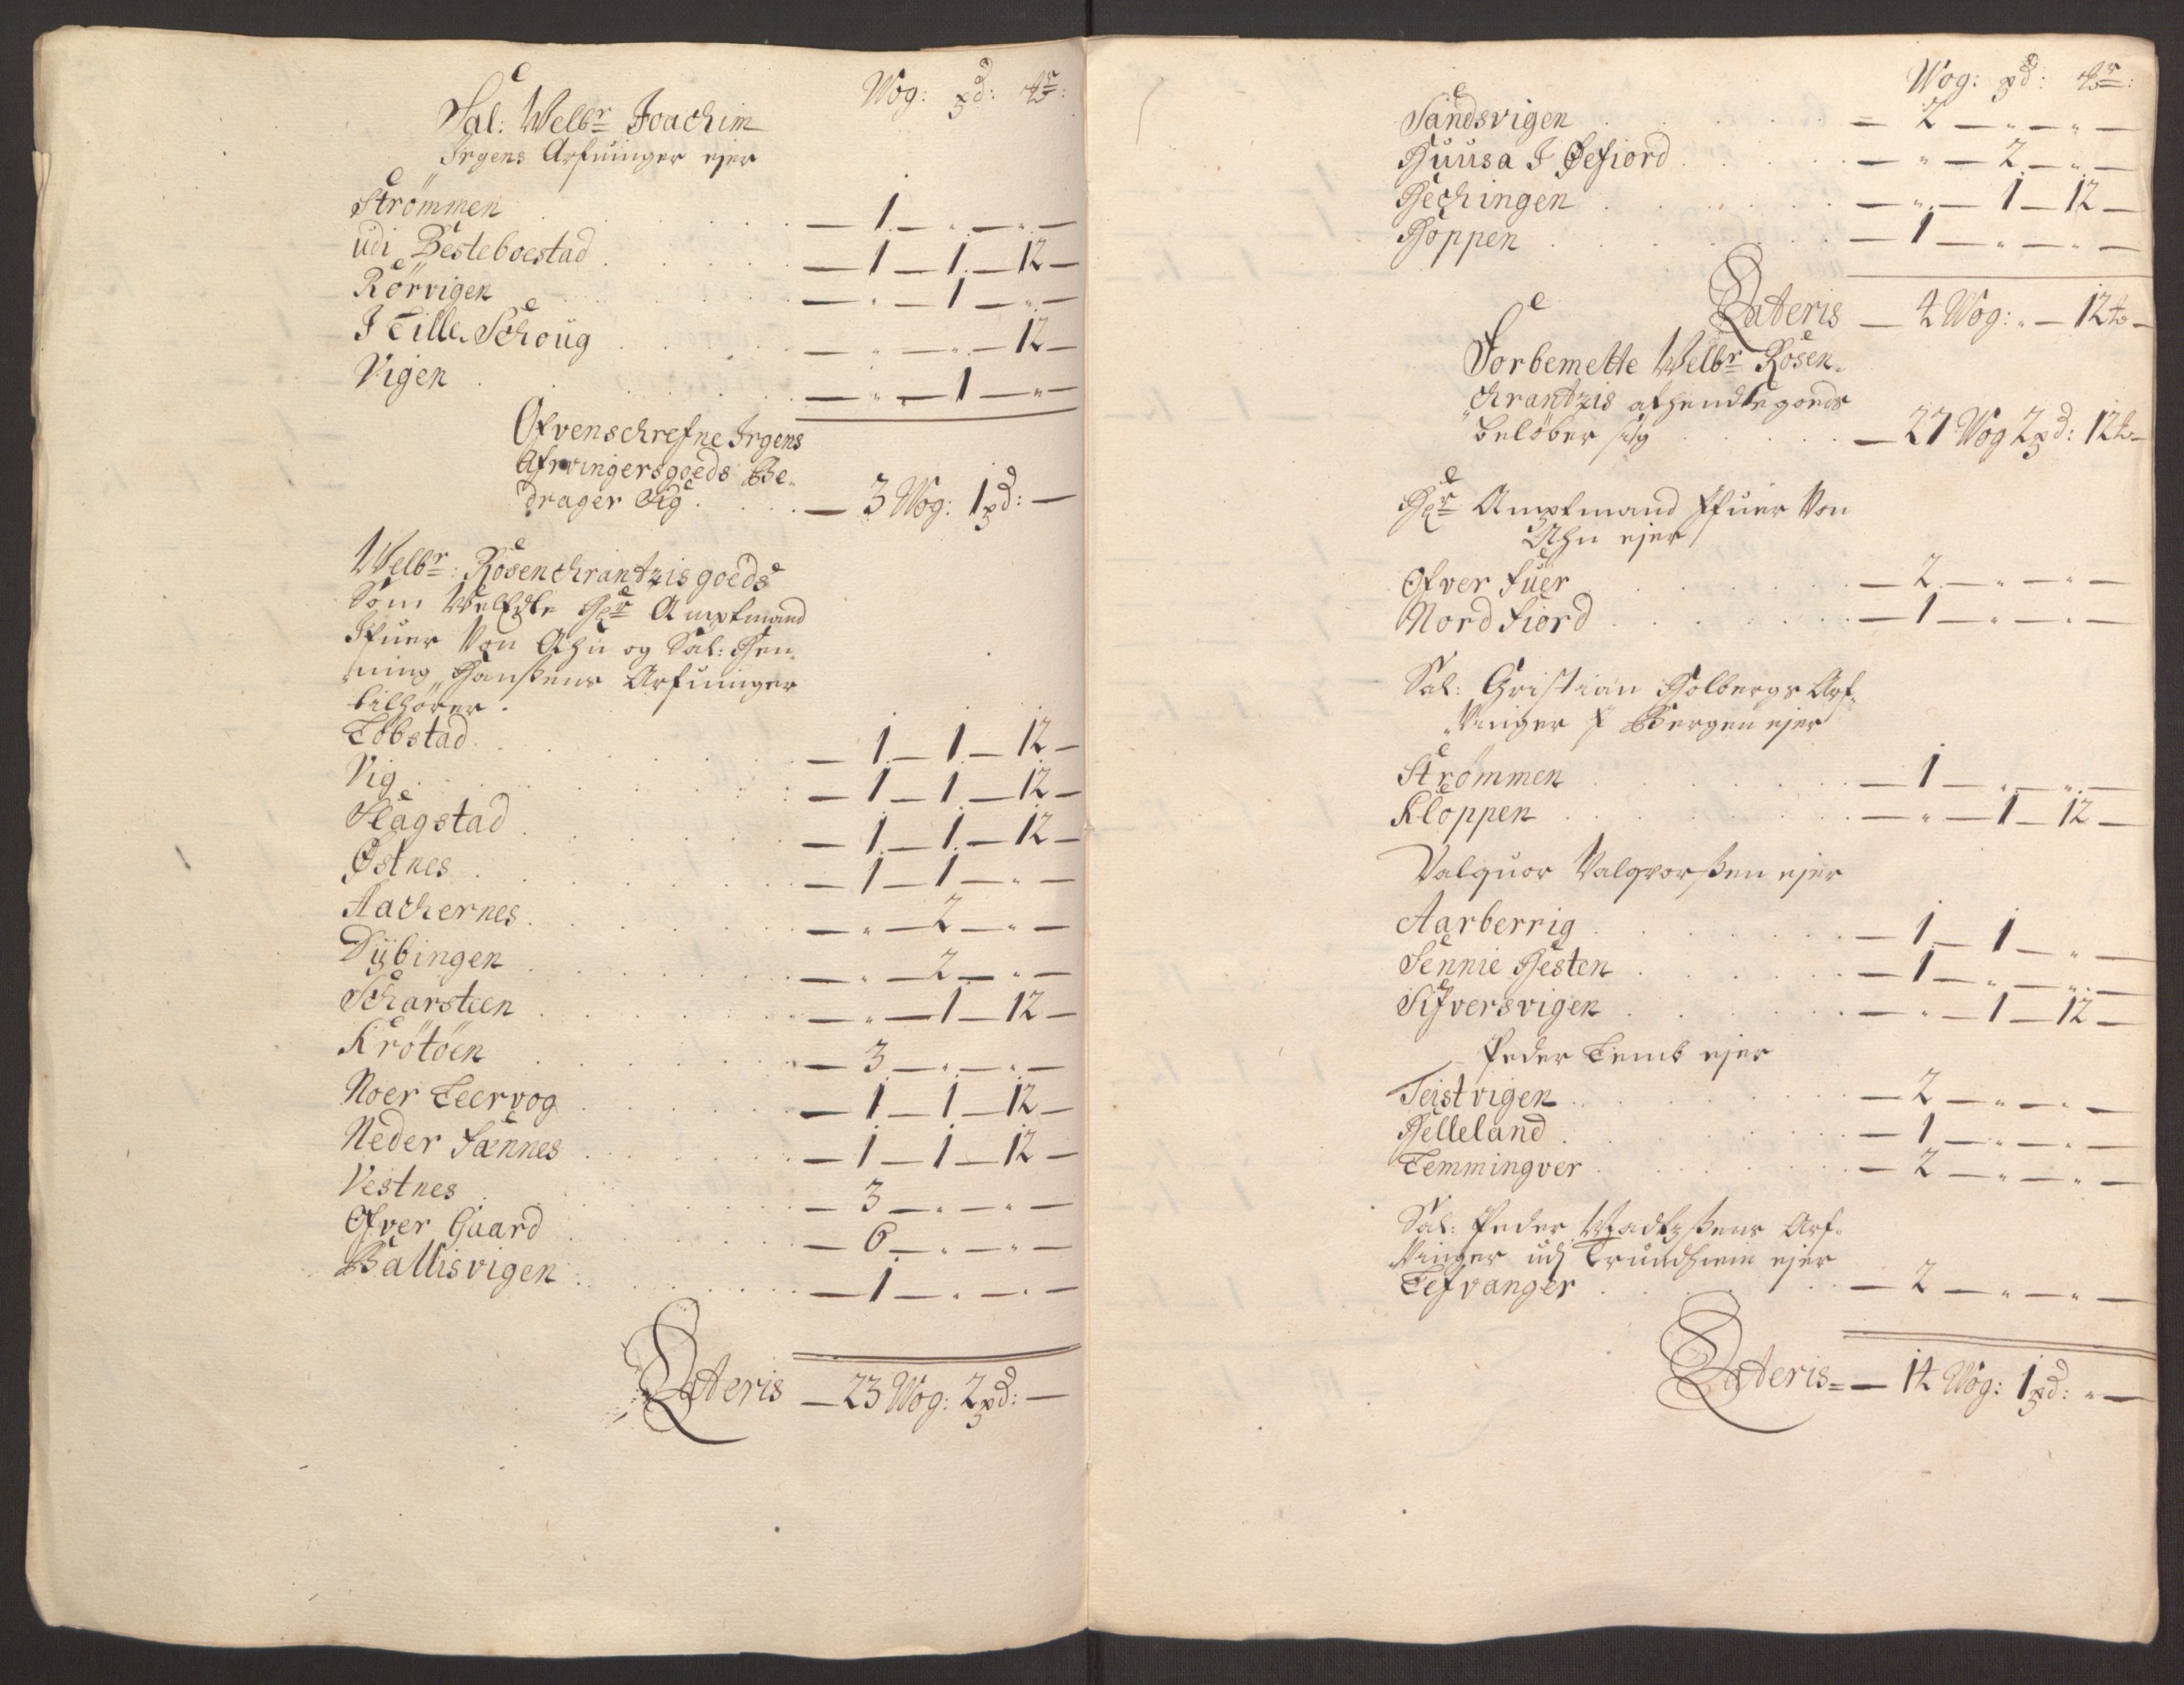 Wog: pd: ℔r:
Sal: Welbr Joachim
Irgens Arfuinger ejer
Strömmen — 1 — " — " —
udi Besteboestad — 1 — 1 — 12 —
Rörvigen — " — 1 — " —
I Lille Schoug — " — " — 12 —
Vigen — " — 1 — " —
Ofvenschrefne Irgens
Afrvingersgoeds Be-
drager Sig — 3 Wog: 1 pd: —
Welbr: Rosenchrantzis goeds
Som Welbde Hr Amptmand
Ifuer Von Ahn og Sal: Hen-
ning Hanßens Arfuinger
tilhörer.
Tobstad — 1 — 1 — 12 —
Vig — 1 — 1 — 12 —
Flagstad — 1 — 1 — 12 —
Østnes — 1 — 1 — " —
Aachernes — " — 2 — " —
Dÿbingen — " — 2 — " —
Scharsteen — " — 1 — 12 —
Krötöen — 3 — " — " —
Noer Leervog — 1 — 1 — 12 —
Neder Sænnes — 1 — 1 — 12 —
Vestnes — 3 — " — " —
Ofver Gaard — 6 — " — " —
Ballisvigen — 1 — " — " —
Lateris — 23 Wog: 2 pd: —
Wog: pd: ℔r:
Sandsvigen — 2 — " — " —
Huusa I Øefiord — " — 2 — " —
Hechingen — " — 1 — 12 —
Hoppen — 1 — " — " —
Lateris — 4 Wog: " — 12 ℔ —
Forbemelte Welbr Rosen-
chrantzis afhendte goeds
belöber sig — 27 Wog 2 pd: 12 ℔ —
Hr Amptmand Ifuer Von
Ahn ejer
Ofver Suer — 2 — " — " —
Nord Fiord — 1 — " — " —
Sal: Christian Holbergs Arf-
vinger I Bergen ejer
Strömmen — 1 — " — " —
Kloppen — " — 1 — 12 —
Valquor Valqvorßen ejer
Aarberrig — 1 — 1 — " —
Sennie Hesten — 1 — " — " —
Sifversvigen — " — 1 — 12 —
Peder Lemb ejer
Teistvigen — 2 — " — " —
Helleland — 1 — " — " —
Lemmingver — 2 — " — " —
Sal: Peder Madtzßens Arf-
vinger udj Trundhiem ejer
Lefvanger — 2 — " — " —
Lateris — 14 Wog: 1 pd: " —